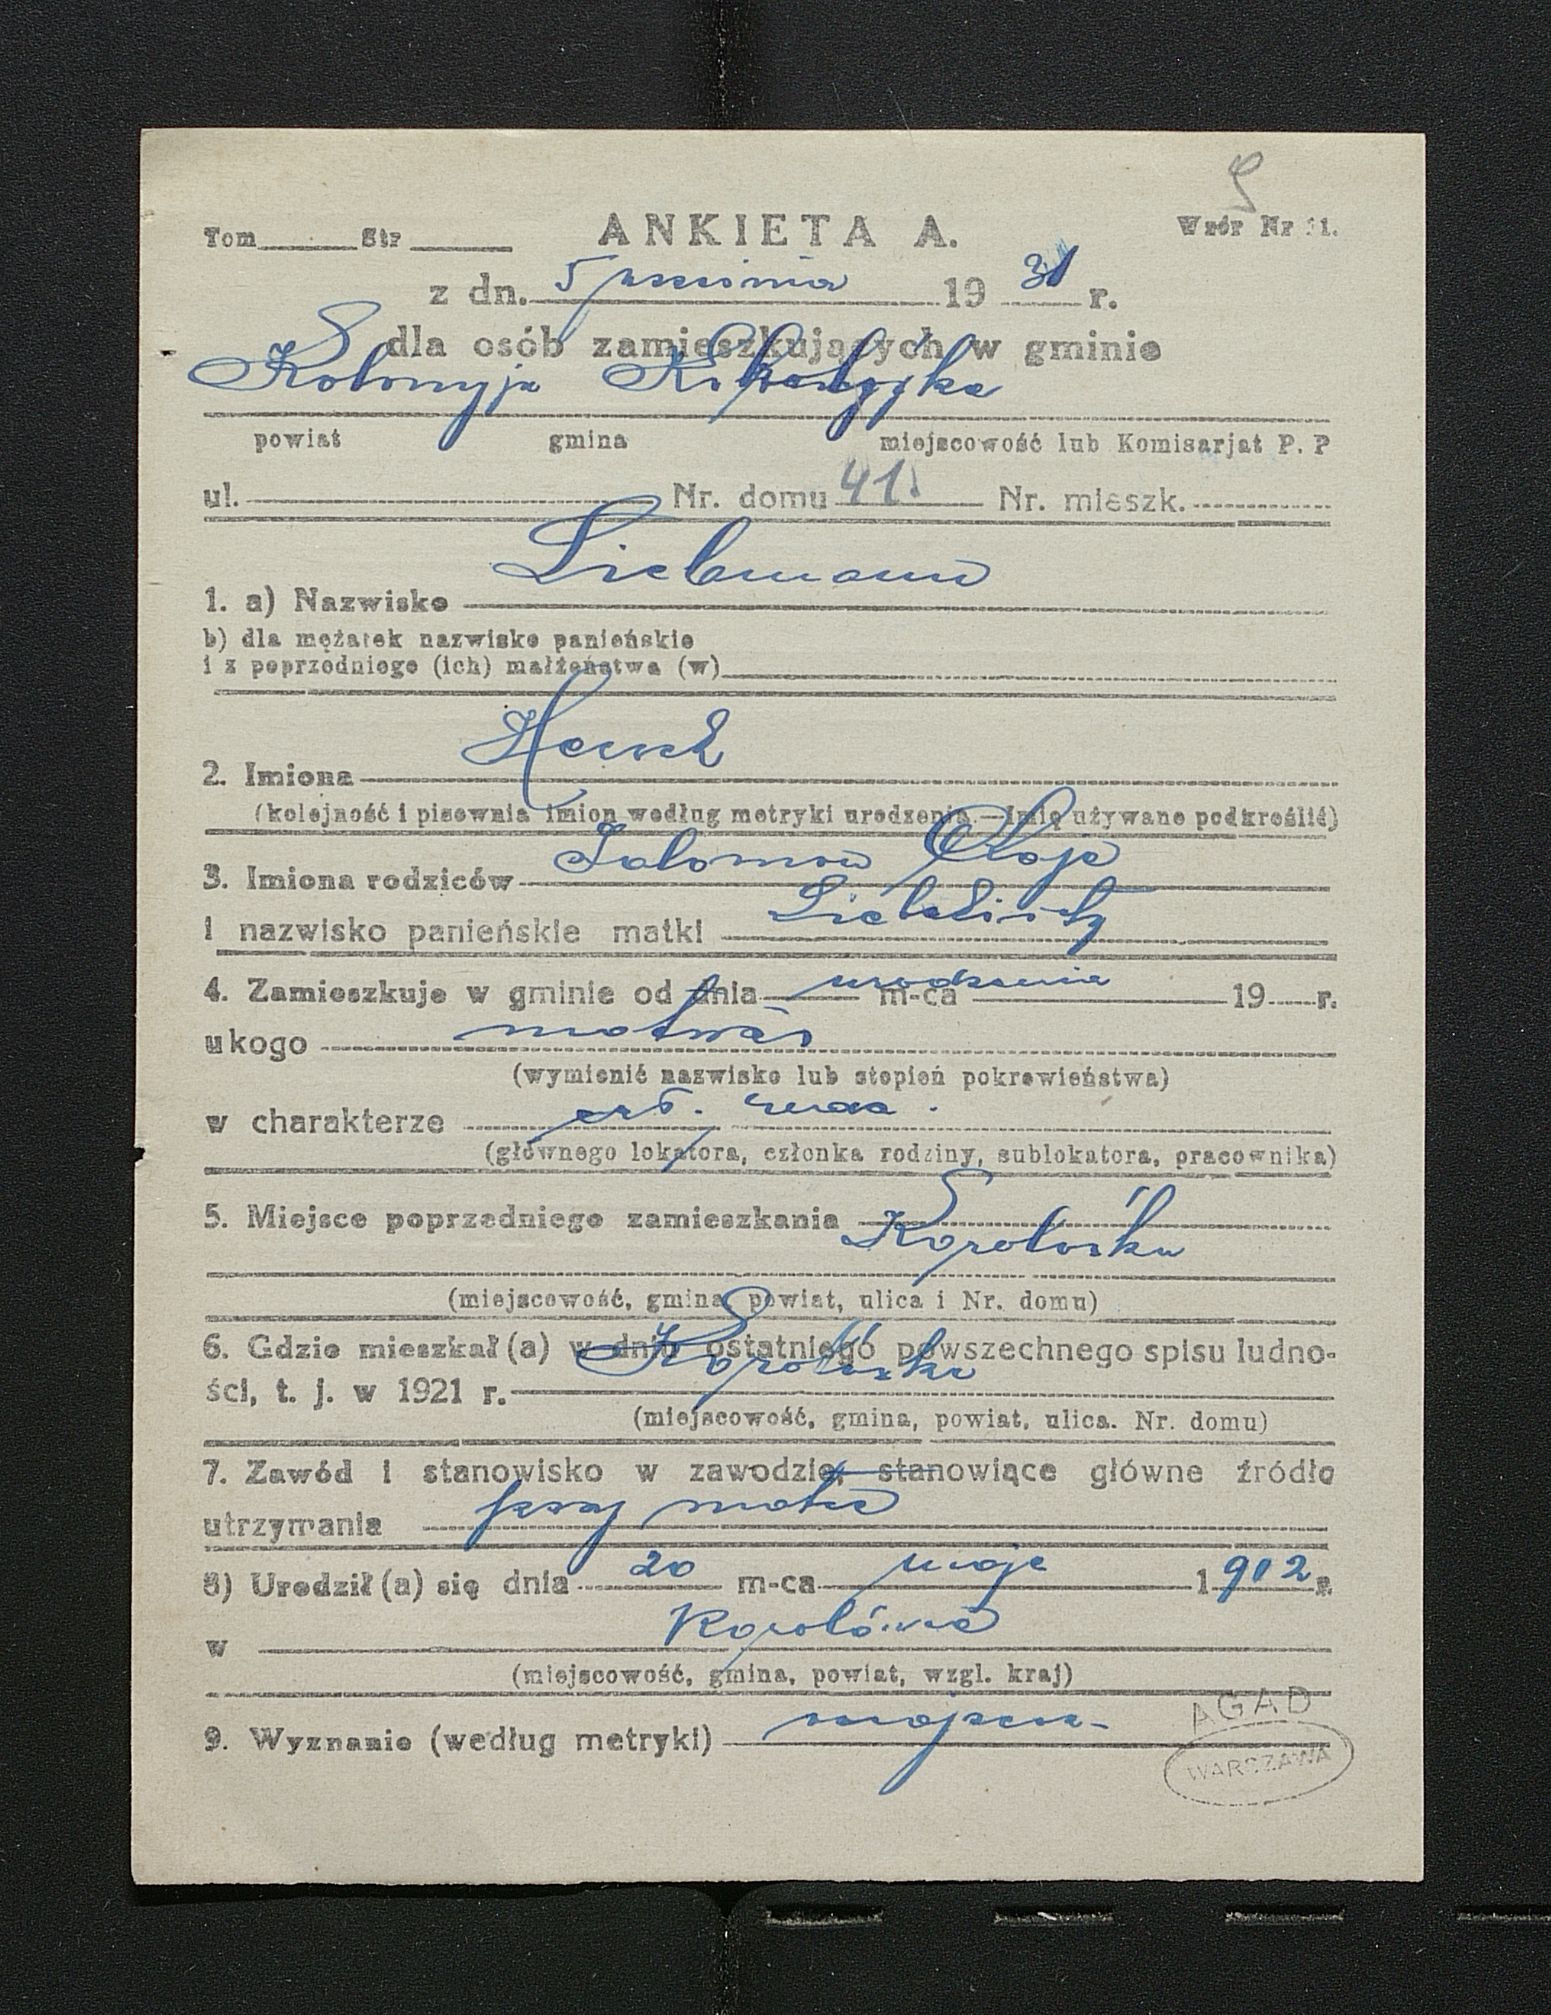 Tom Str ANKIETA A. Wzór Nr 11.
z dn. 5 19 31 r.
dla osób zamieszkujących w gminie
Kołomyja
powiat gmina miejscowość lub Komisarjat P. P
ul. Nr. domu 41 Nr. mieszk.
Liebmann
1. a) Nazwisko
b) dla mężatek nazwisko panieńskie
i z poprzedniego (ich) małżeństwa (w)
2. Imiona
(kolejność i pisownia imion według metryki urodzenia.—Imię używane podkreślić)
3. Imiona rodziców Salomon Chaja
i nazwisko panieńskie matki
4. Zamieszkuje w gminie od dnia urodzenia m-ca 19 r.
u kogo
(wymienić nazwisko lub stopień pokrewieństwa)
w charakterze
(głównego lokatora, członka rodziny, sublokatora, pracownika)
5. Miejsce poprzedniego zamieszkania
(miejscowość, gmina, powiat, ulica i Nr. domu)
6. Gdzie mieszkał (a) w dniu ostatniego powszechnego spisu ludno-
ści, t. j. w 1921 r.
(miejscowość, gmina, powiat, ulica. Nr. domu)
7. Zawód i stanowisko w zawodzie, stanowiące główne źródło
utrzymania przy matce
8) Urodził (a) się dnia 20 m-ca maja 1902 r.
w
(miejscowość, gmina, powiat, wzgl. kraj)
9. Wyznanie (według metryki) mojżesz.
AGAD
WARSZAWA